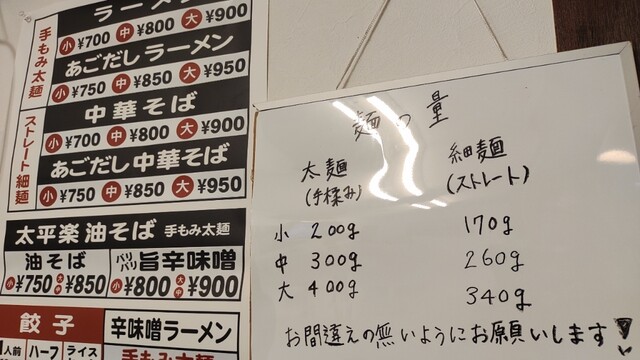 ラーメン
小 ¥700 中 ¥800 大 ¥900
手もみ太麺
あごだしラーメン
小 ¥750 中 ¥850 大 ¥950
中華そば
小 ¥700 中 ¥800 大 ¥900
ストレート細麺
あごだし中華そば
小 ¥750 中 ¥850 大 ¥950
太平楽 油そば 手もみ太麺
油そば
小 ¥750 中大 ¥850
パリパリ旨辛味噌
小 ¥800 中大 ¥900
餃子
1人前 ハーフ ライス
辛味噌ラーメン
手もみ太麺
麺の量
太麺 細麺
(手揉み) (ストレート)
小 200g 170g
中 300g 260g
大 400g 340g
お間違えの無いようにお願いします!